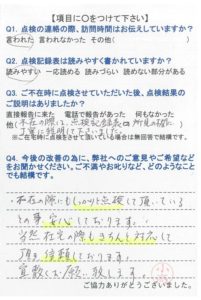 【項目に○をつけて下さい】
Q1. 点検の連絡の際、訪問時間はお伝えしていますか？
言われた 言われなかった その他( )
Q2. 点検記録表は読みやすく書かれていますか？
読みやすい 一応読める 読みづらい 読めない部分がある
Q3. ご不在時に点検させていただいた後、点検結果の
ご説明はありましたか？
直接報告に来た 電話で報告があった 何もなかった
他( 不在の際にて、点検記録表に所見の確に
丁寧に説明して下さいました。 )
※ご在宅時に点検をさせて頂いている場合は無回答で結構です。
Q4. 今後の改善の為に、弊社へのご意見やご希望など
をお聞かせください。ご不満やお叱りなど、どのようなこと
でも結構です。
・不在の際もしっかりと点検して頂いている
との事 安心しております。
当然 在宅の際もきちんと対応して
頂き 信頼しております。
宜敷くお願い致します。
ご協力ありがとうございました。